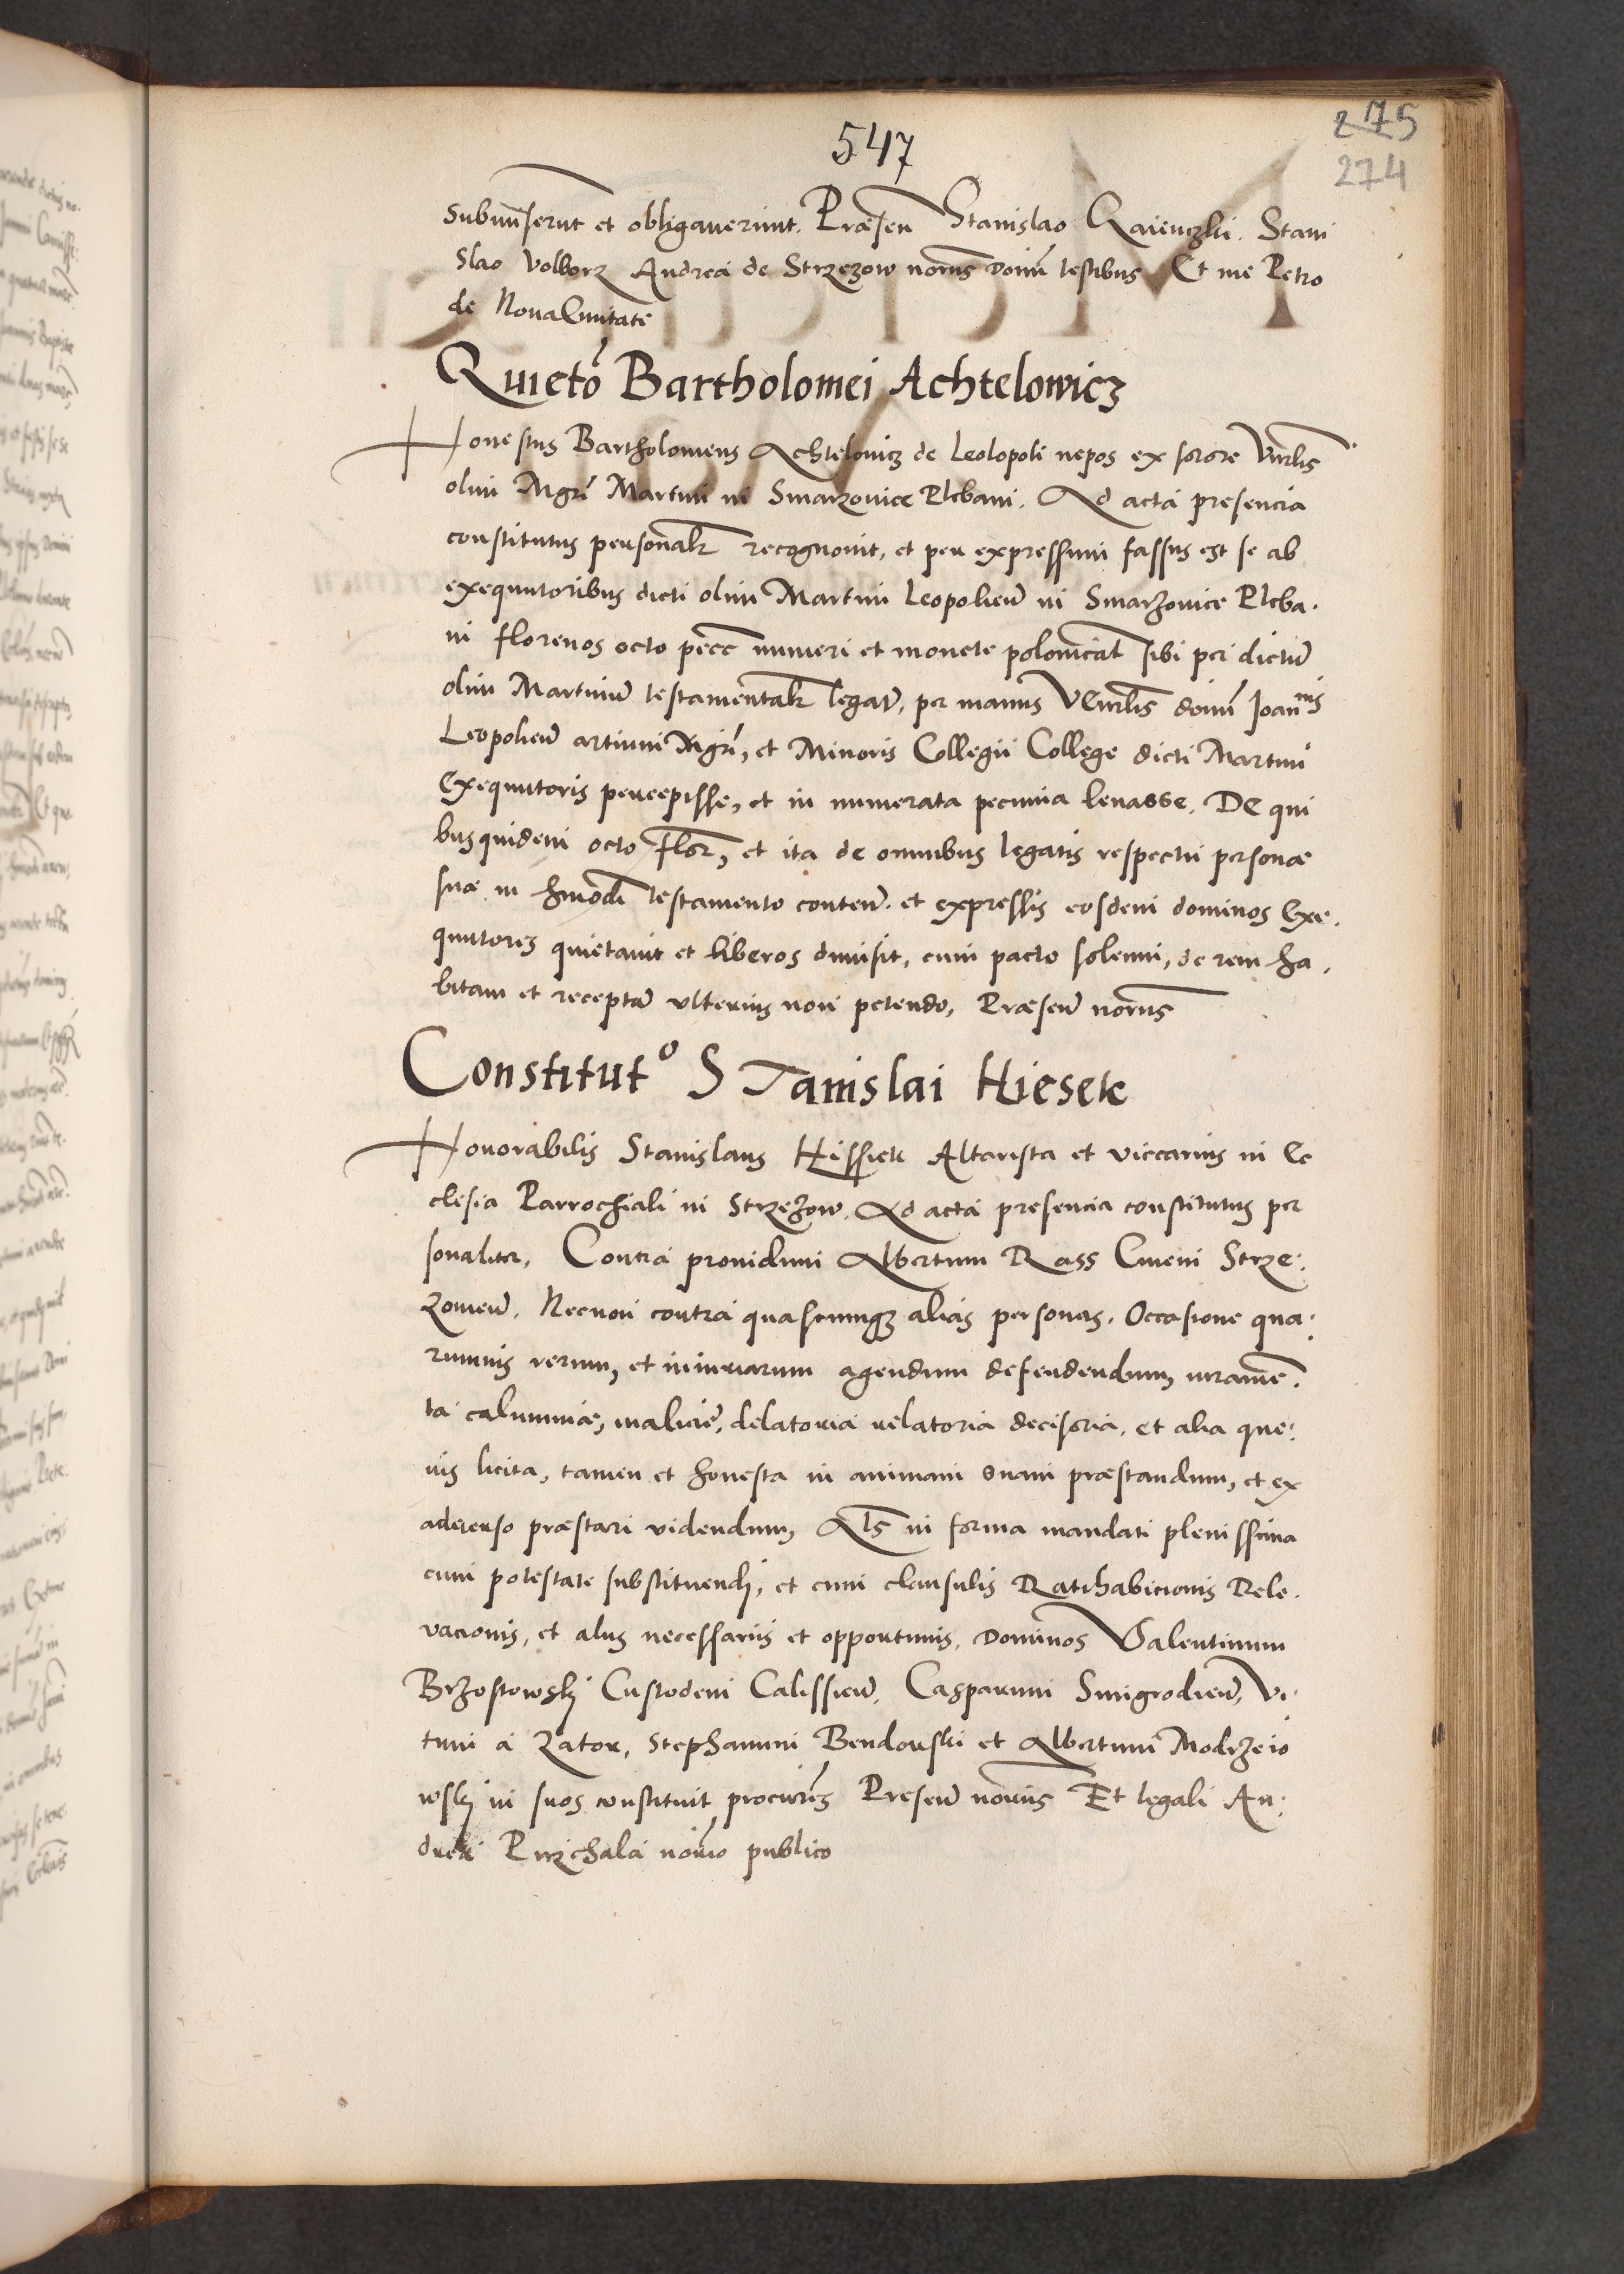 547
275
274
et obligaverint. Præsen Stanislao Stani
slao Volborz Andrea de Strzezow noriis domi testibus Et me Petro
de Nova Civitate
Quietō Bartholomei Achtelowicz
Honestus Bartholomeus Achtelovicz de Leolopoli nepos ex sorore Vnrlis
olim Mgri Martini in Smarzovice Plebani. Ad acta presencia
constitutus personalr recognovit, et per expressum fassus est se ab
exequutoribus dicti olim Martini Leopolien in Smarzovice Pleba.
ni florenos octo pecc numeri et monete polonicalis sibi per dictū
olim Martinū testamentalr legat, per manus Venrlis domī Joannis
Leopolien artium Mgri, et Minoris Collegii College dicti Martini
Exequutoris percepisse, et in numerata pecunia levasse. De qui
bus quidem octo flor, et ita de omnibus legatis respectu personæ
suæ in hmodi testamento conten. et expressis eosdem dominos Exe.
quutores quietavit et liberos dimisit, cum pacto solenni, de rem ha.
bitam et receptā ulterius non petendo, Præsen noriis
Constitutº STanislai Hiesek
Honorabilis Stanislaus Hissiek Altarista et viccarius in Ec
clesia Parrochiali in Strzezow. Ad acta presencia constitutus per
sonaliter, Contra providum Albertum Rass Cmeni Strze:
zowien. Necnon contra quascunqz alias personas. Occasione qua:
rumvis rerum, et iniuriarum agendum defendendum, iuramē:
ta calumniæ, maliciē, delatoria relatoria decisoria, et alia que:
vis licita, tamen et honesta in animam suam præstandum, et ex
adverso præstari videndum, Als in forma mandati plenissima
cum potestate substituendj, et cum clausulis Ratihabicionis Rele.
vacionis, et aliis necessariis et opportunis. Dominos Valentinum
Brzostowskj Custodem Calissien, Casparum Smigrodien, Vi.
tum a Zator, Stephanum Bendowski et Albertum Modrzeio
wskj in suos constituit procures Presen noriis Et legali An:
drea Pirzchala norio publico